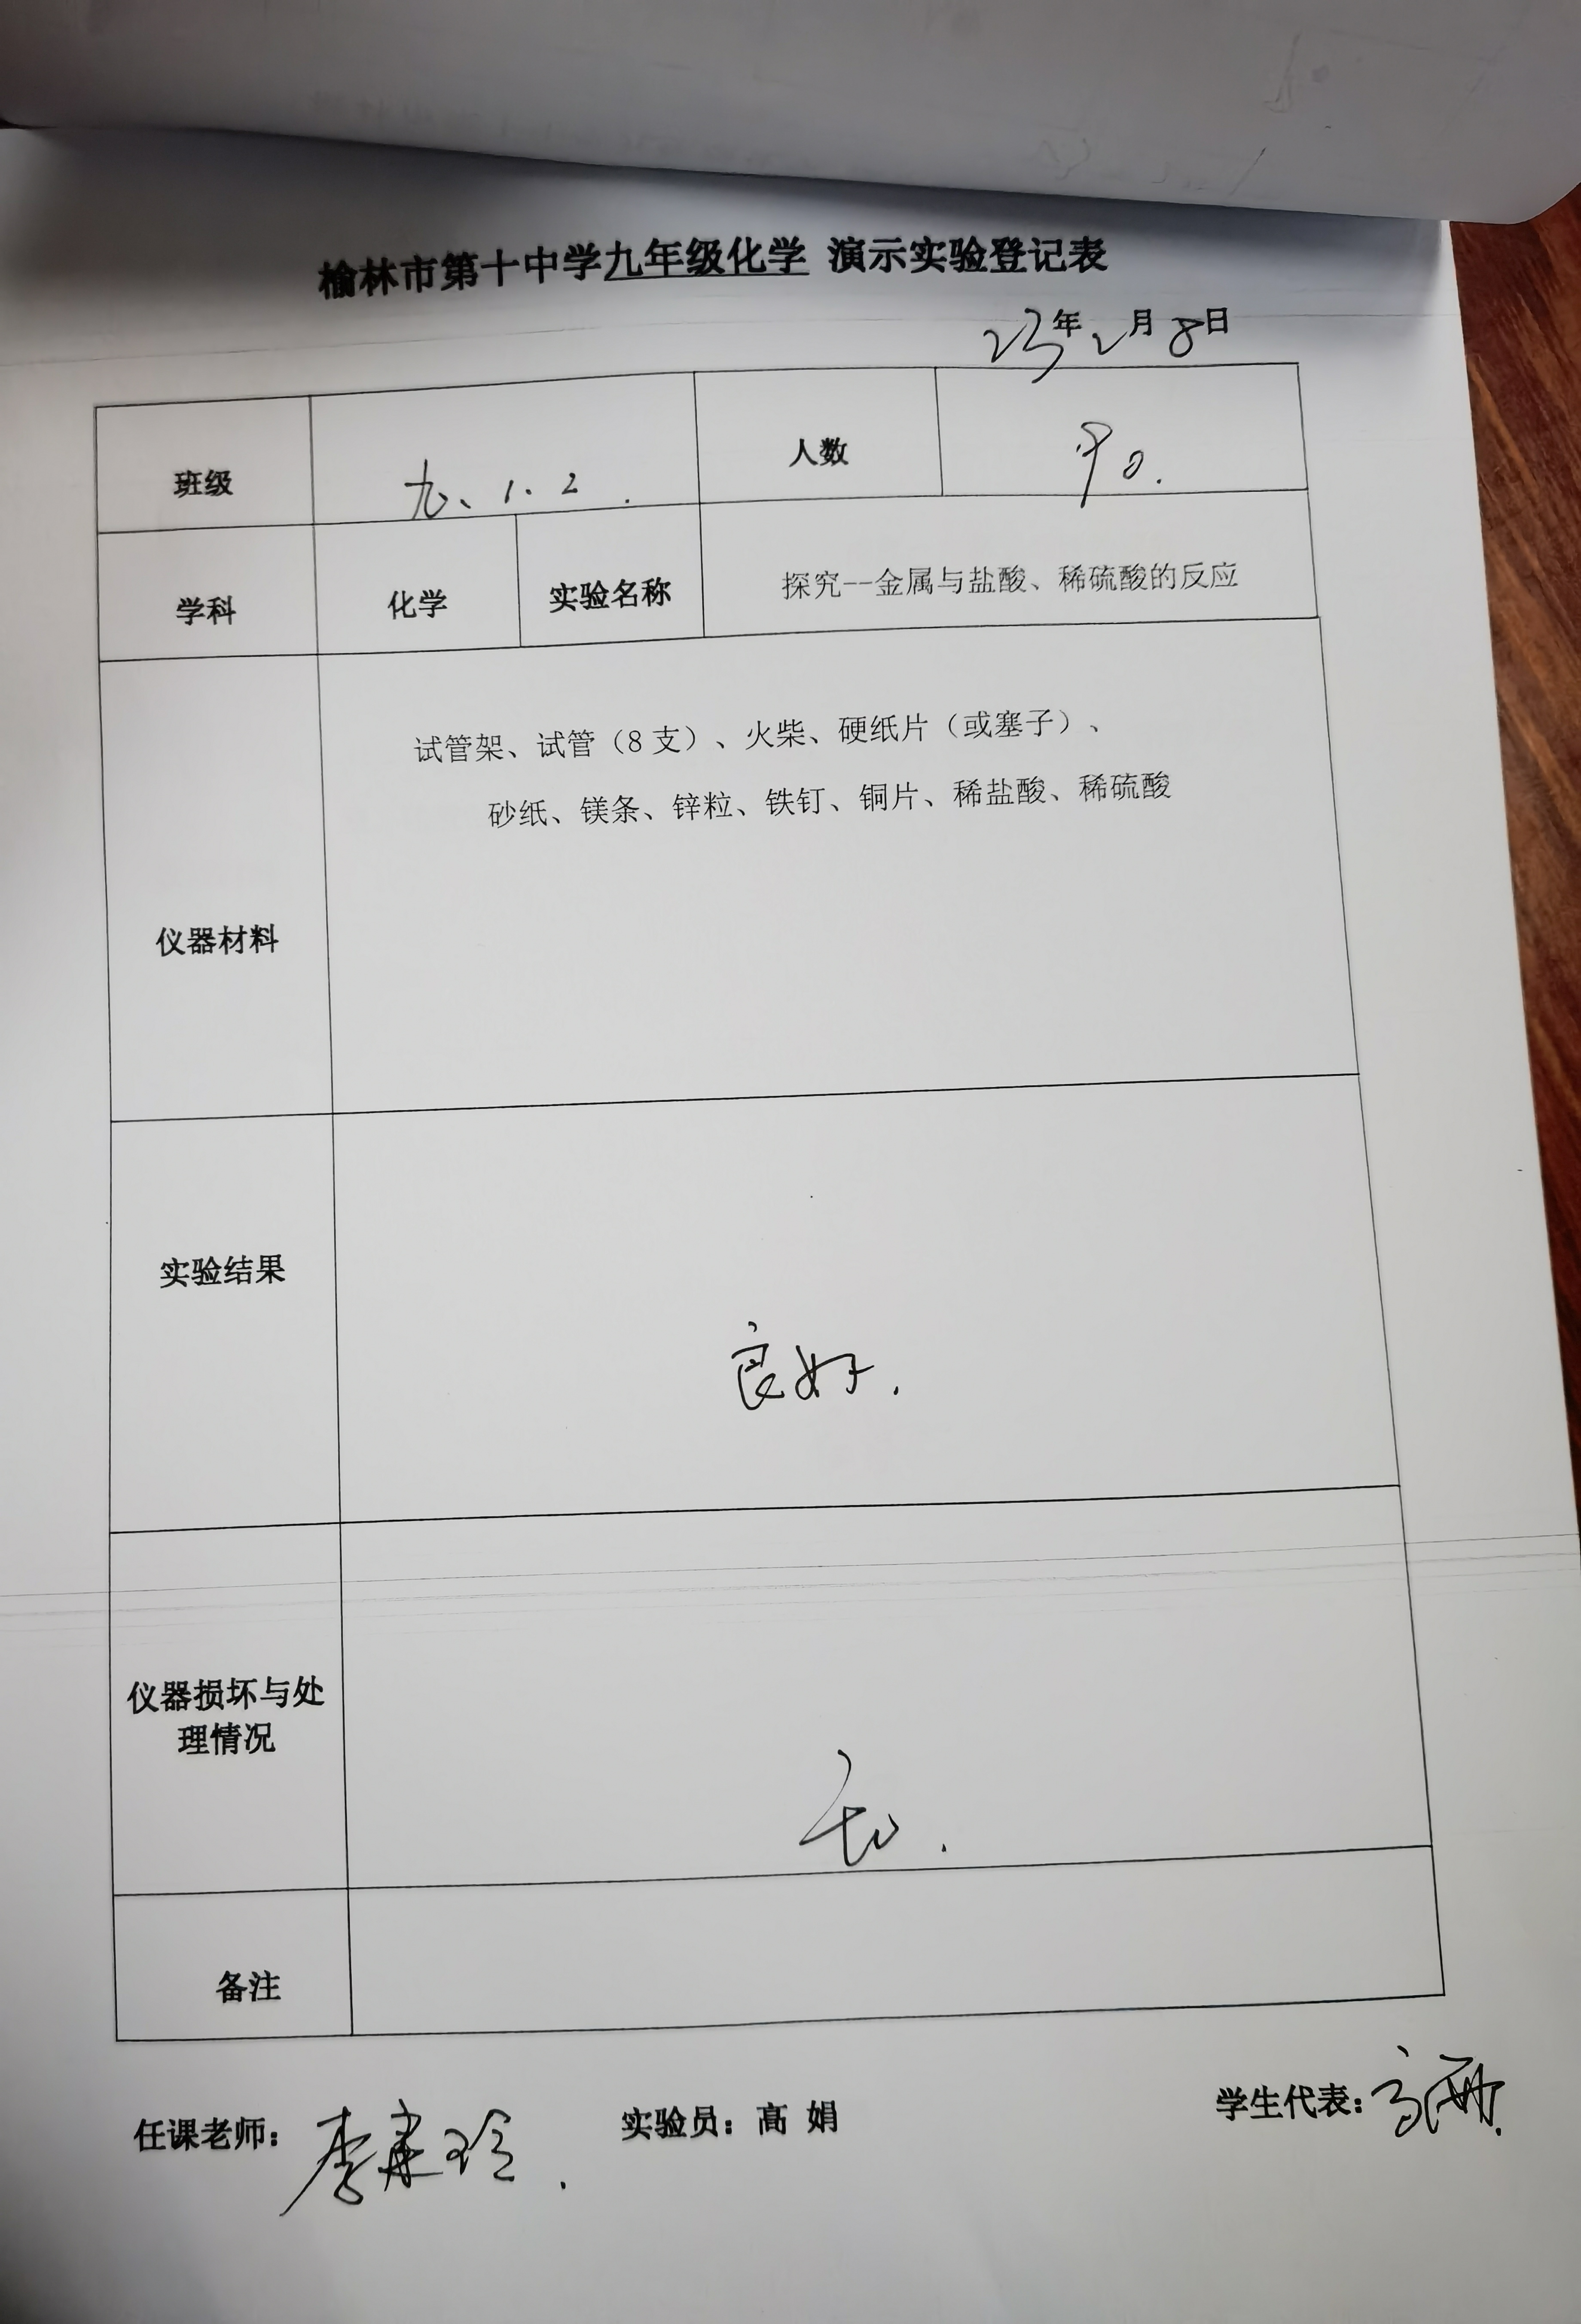 榆林市第十中学九年级化学 演示实验登记表
23年2月8日
班级 九、1、2. 人数 90.
学科 化学 实验名称 探究--金属与盐酸、稀硫酸的反应
试管架、试管（8 支）、火柴、硬纸片（或塞子）、
砂纸、镁条、锌粒、铁钉、铜片、稀盐酸、稀硫酸
仪器材料
实验结果
良好.
仪器损坏与处
理情况
无.
备注
任课老师： 实验员：高 娟 学生代表：